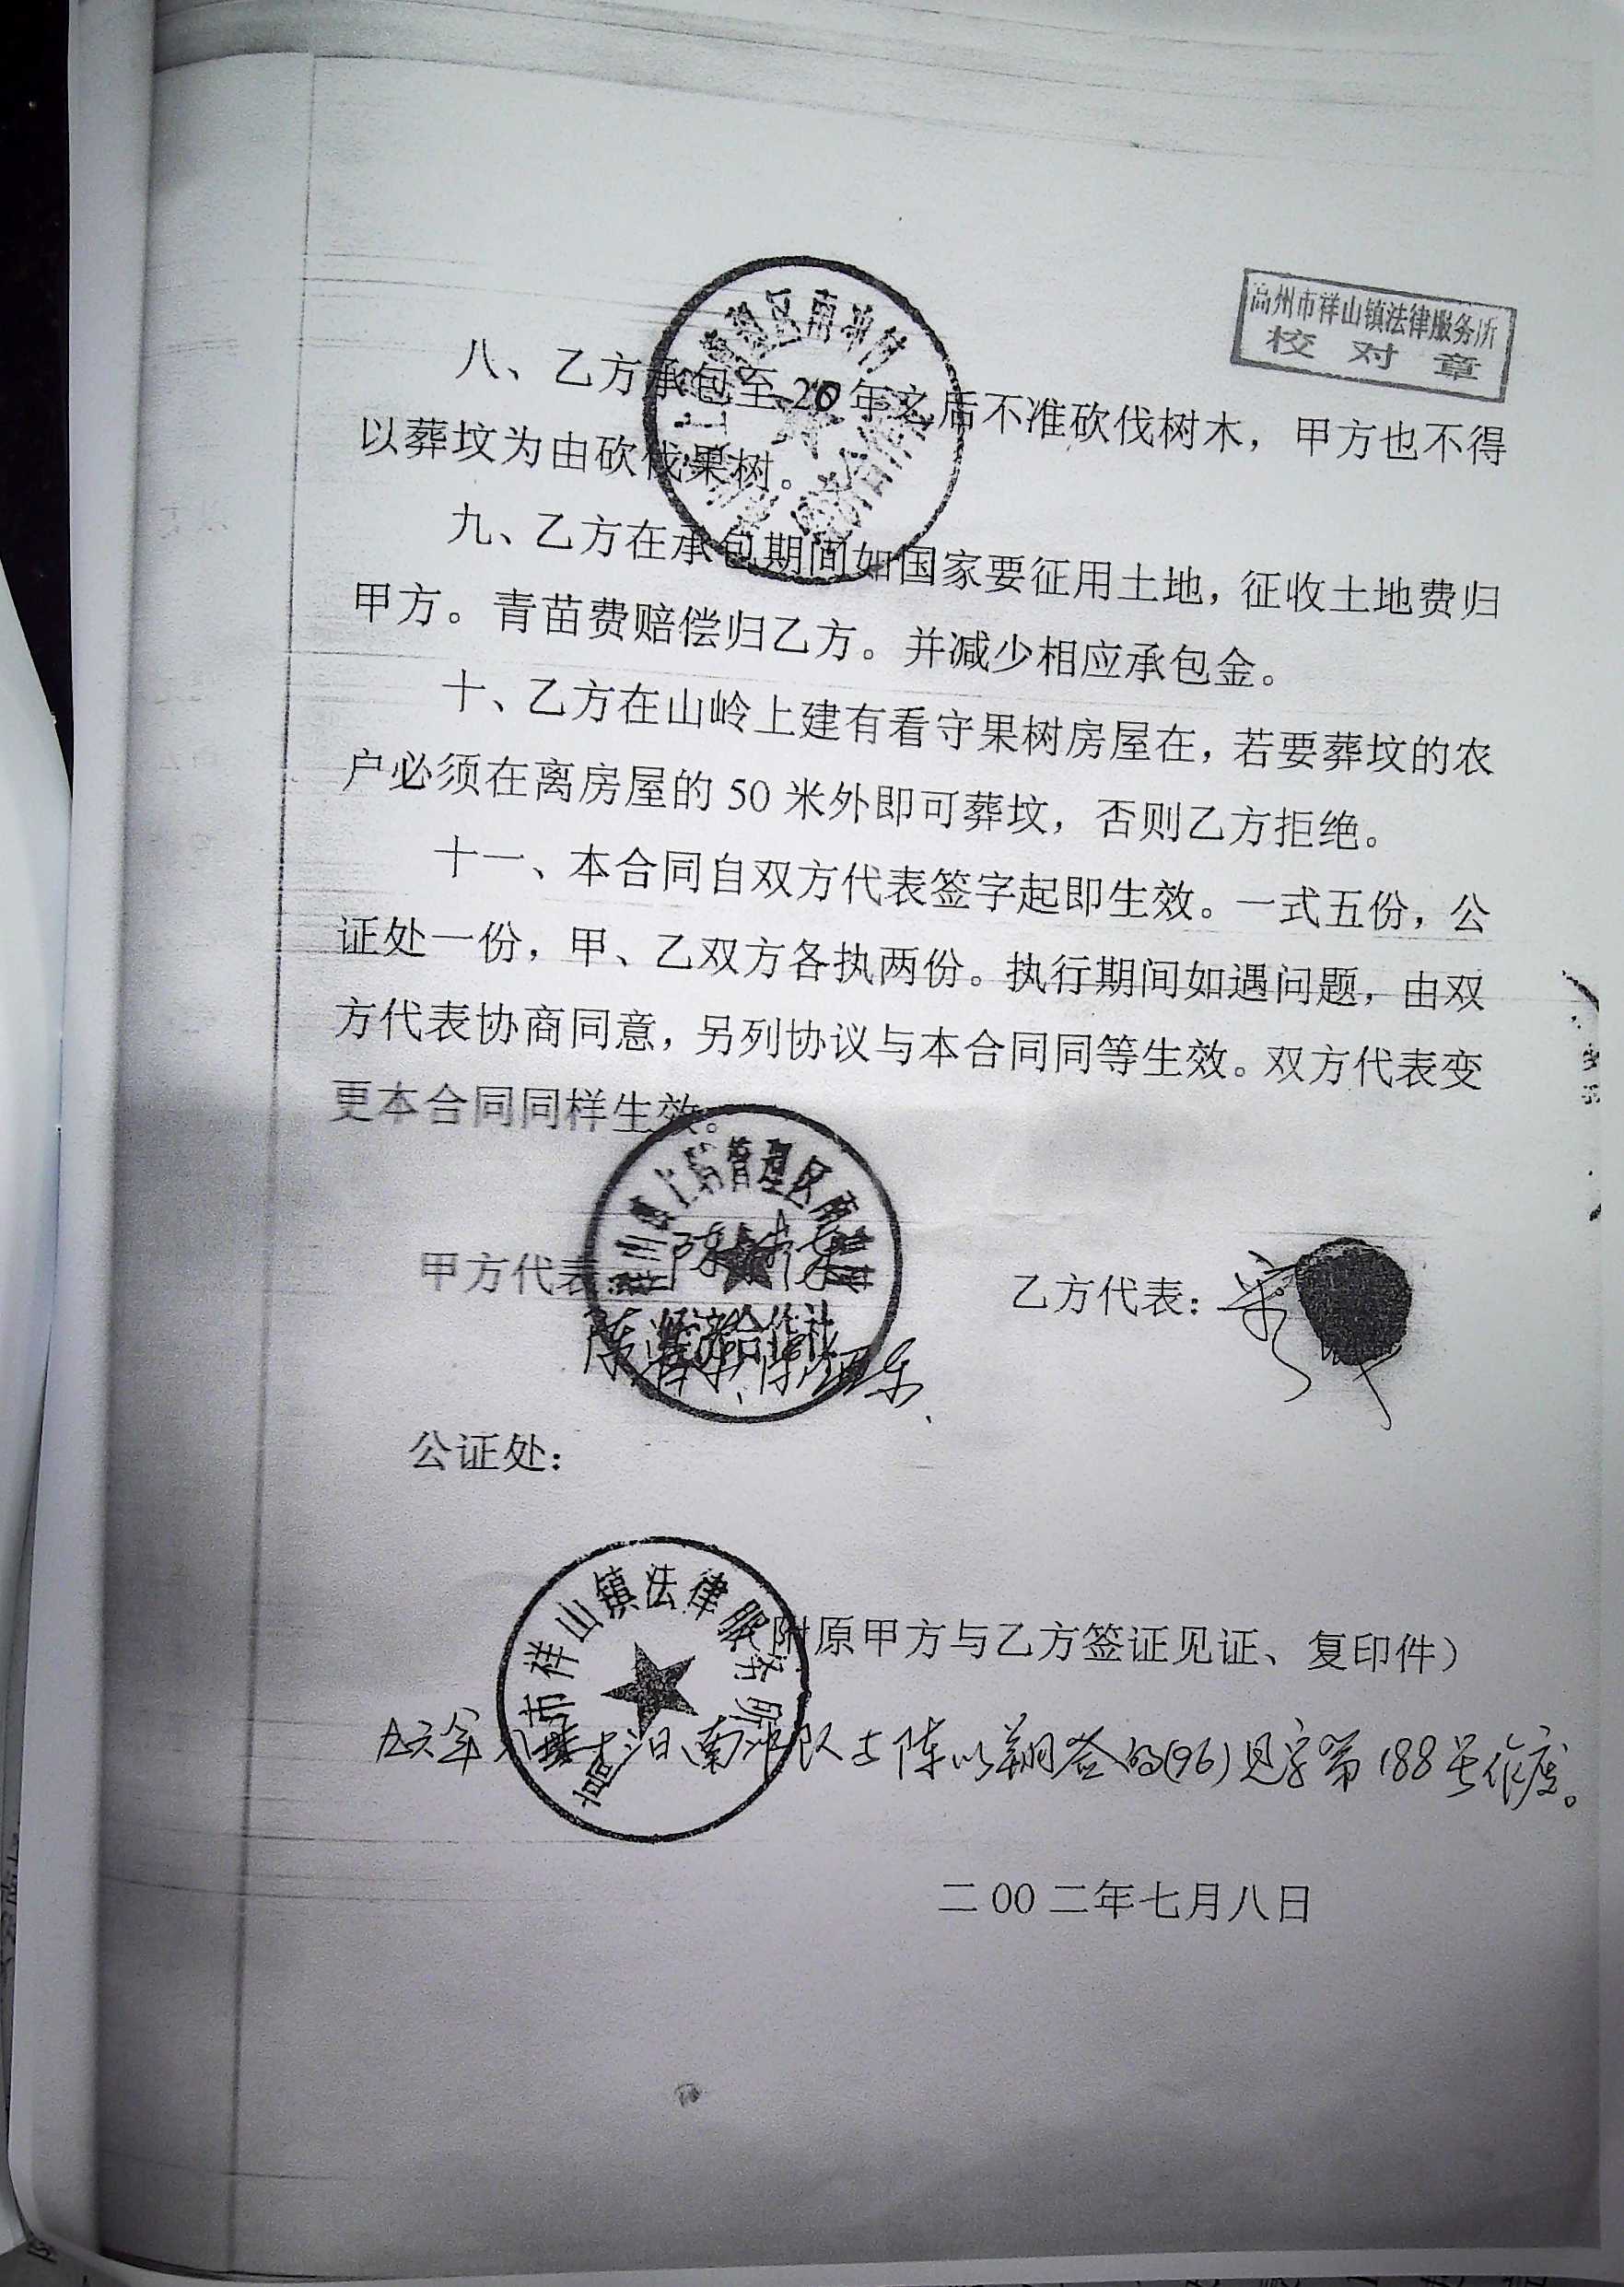 高州市祥山镇法律服务所
校对章
八、乙方承包至20年之后不准砍伐树木，甲方也不得
以葬坟为由砍伐果树。
九、乙方在承包期间如国家要征用土地，征收土地费归
甲方。青苗费赔偿归乙方。并减少相应承包金。
十、乙方在山岭上建有看守果树房屋在，若要葬坟的农
户必须在离房屋的50米外即可葬坟，否则乙方拒绝。
十一、本合同自双方代表签字起即生效。一式五份，公
证处一份，甲、乙双方各执两份。执行期间如遇问题，由双
方代表协商同意，另列协议与本合同同等生效。双方代表变
更本合同同样生效。
管理区
经济合作社
甲方代表
乙方代表：
公证处：
高州市祥山镇法律服务所
附原甲方与乙方签证见证、复印件）
九六年 日南 队与陈以翔签的(96)见字第188号作废。
二00二年七月八日